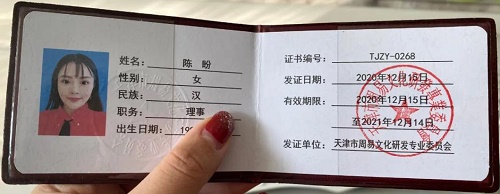 姓名: 陈 盼
性别: 女
民族: 汉
职务: 理事
出生日期: 19
证书编号: TJZY-0268
发证日期: 2020年12月15日
有效期限: 2020年12月15日
至2021年12月14日
发证单位: 天津市周易文化研发专业委员会